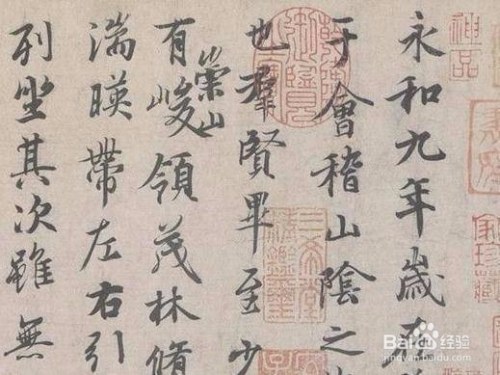 永和九年歲在
于會稽山陰之
也羣賢畢至少
有崇山峻領茂林脩
湍暎帶左右引
列坐其次雖無
神品
三希堂
Baidu经验
jingyan.baidu.com